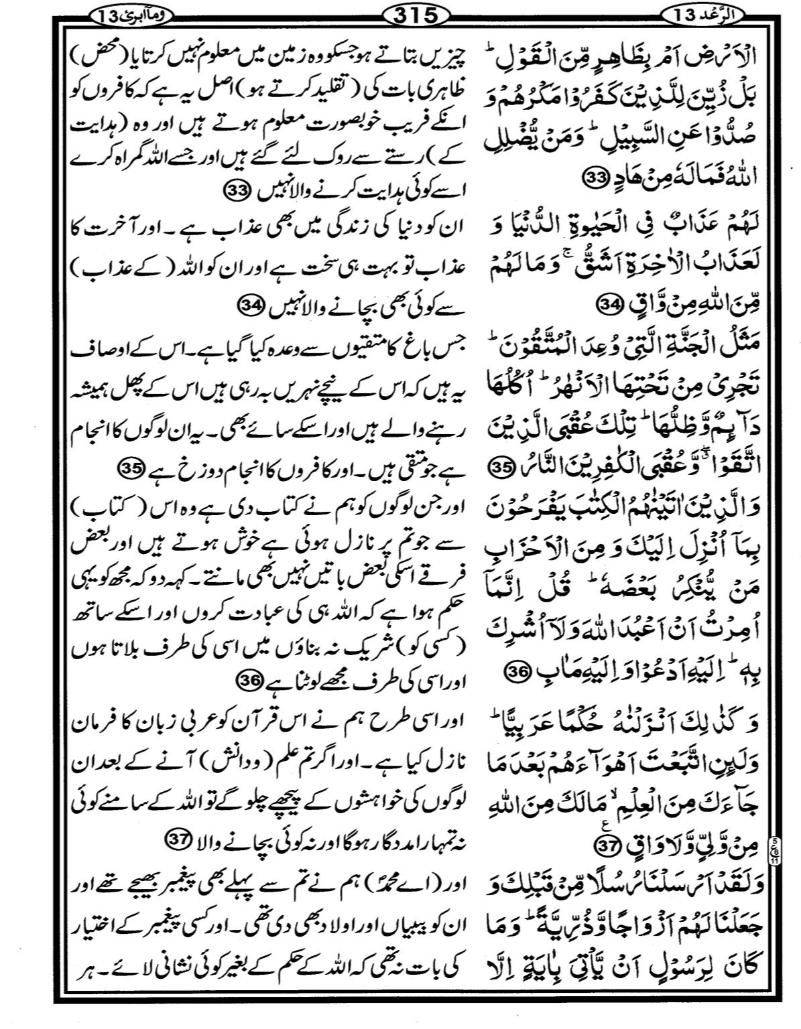 الرَّعْد 13
315
وما ابرئ 13
الْاَرْضِ اَمْ بِظَاهِرٍ مِّنَ الْقَوْلِ ؕ
بَلْ زُيِّنَ لِلَّذِيْنَ كَفَرُوْا مَكْرُهُمْ وَ
صُدُّوْا عَنِ السَّبِيْلِ ؕ وَمَنْ يُّضْلِلِ
اللّٰهُ فَمَا لَهٗ مِنْ هَادٍ 33
لَهُمْ عَذَابٌ فِي الْحَيٰوةِ الدُّنْيَا وَ
لَعَذَابُ الْاٰخِرَةِ اَشَقُّ ۚ وَمَا لَهُمْ
مِّنَ اللّٰهِ مِنْ وَّاقٍ 34
مَثَلُ الْجَنَّةِ الَّتِيْ وُعِدَ الْمُتَّقُوْنَ ؕ
تَجْرِيْ مِنْ تَحْتِهَا الْاَنْهٰرُ ؕ اُكُلُهَا
دَآئِمٌ وَّظِلُّهَا ؕ تِلْكَ عُقْبَى الَّذِيْنَ
اتَّقَوْا ۖ وَّعُقْبَى الْكٰفِرِيْنَ النَّارُ 35
وَالَّذِيْنَ اٰتَيْنٰهُمُ الْكِتٰبَ يَفْرَحُوْنَ
بِمَاۤ اُنْزِلَ اِلَيْكَ وَمِنَ الْاَحْزَابِ
مَنْ يُّنْكِرُ بَعْضَهٗ ؕ قُلْ اِنَّمَاۤ
اُمِرْتُ اَنْ اَعْبُدَ اللّٰهَ وَلَاۤ اُشْرِكَ
بِهٖ ؕ اِلَيْهِ اَدْعُوْا وَاِلَيْهِ مَاٰبِ 36
وَكَذٰلِكَ اَنْزَلْنٰهُ حُكْمًا عَرَبِيًّا ؕ
وَلَئِنِ اتَّبَعْتَ اَهْوَآءَهُمْ بَعْدَ مَا
جَآءَكَ مِنَ الْعِلْمِ ۙ مَا لَكَ مِنَ اللّٰهِ
مِنْ وَّلِيٍّ وَّلَا وَاقٍ 37
وَلَقَدْ اَرْسَلْنَا رُسُلًا مِّنْ قَبْلِكَ وَ
جَعَلْنَا لَهُمْ اَزْوَاجًا وَّذُرِّيَّةً ؕ وَمَا
كَانَ لِرَسُوْلٍ اَنْ يَّاْتِيَ بِاٰيَةٍ اِلَّا
چیزیں بتاتے ہو جسکو وہ زمین میں معلوم نہیں کرتا یا (محض)
ظاہری بات کی (تقلید کرتے ہو) اصل یہ ہے کہ کافروں کو
انکے فریب خوبصورت معلوم ہوتے ہیں اور وہ (ہدایت
کے) رستے سے روک لئے گئے ہیں اور جسے اللہ گمراہ کرے
اسے کوئی ہدایت کرنے والا نہیں 33
ان کو دنیا کی زندگی میں بھی عذاب ہے ۔ اور آخرت کا
عذاب تو بہت ہی سخت ہے اور ان کو اللہ (کے عذاب)
سے کوئی بھی بچانے والا نہیں 34
جس باغ کا متقیوں سے وعدہ کیا گیا ہے ۔ اس کے اوصاف
یہ ہیں کہ اس کے نیچے نہریں بہ رہی ہیں اس کے پھل ہمیشہ
رہنے والے ہیں اور اسکے سائے بھی ۔ یہ ان لوگوں کا انجام
ہے جو متقی ہیں ۔ اور کافروں کا انجام دوزخ ہے 35
اور جن لوگوں کو ہم نے کتاب دی ہے وہ اس (کتاب)
سے جو تم پر نازل ہوئی ہے خوش ہوتے ہیں اور بعض
فرقے اسکی بعض باتیں نہیں بھی مانتے ۔ کہہ دو کہ مجھ کو یہی
حکم ہوا ہے کہ اللہ ہی کی عبادت کروں اور اسکے ساتھ
(کسی کو) شریک نہ بناؤں میں اسی کی طرف بلاتا ہوں
اور اسی کی طرف مجھے لوٹنا ہے 36
اور اسی طرح ہم نے اس قرآن کو عربی زبان کا فرمان
نازل کیا ہے ۔ اور اگر تم علم (ودانش) آنے کے بعد ان
لوگوں کی خواہشوں کے پیچھے چلو گے تو اللہ کے سامنے کوئی
نہ تمہارا مددگار ہوگا اور نہ کوئی بچانے والا 37
اور (اے محمدؐ) ہم نے تم سے پہلے بھی پیغمبر بھیجے تھے اور
ان کو بیبیاں اور اولاد بھی دی تھی ۔ اور کسی پیغمبر کے اختیار
کی بات نہ تھی کہ اللہ کے حکم کے بغیر کوئی نشانی لائے ۔ ہر
5
ع
11